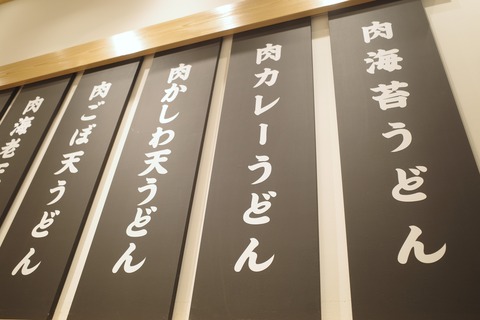 肉海苔うどん
肉カレーうどん
肉かしわ天うどん
肉ごぼ天うどん
肉海老